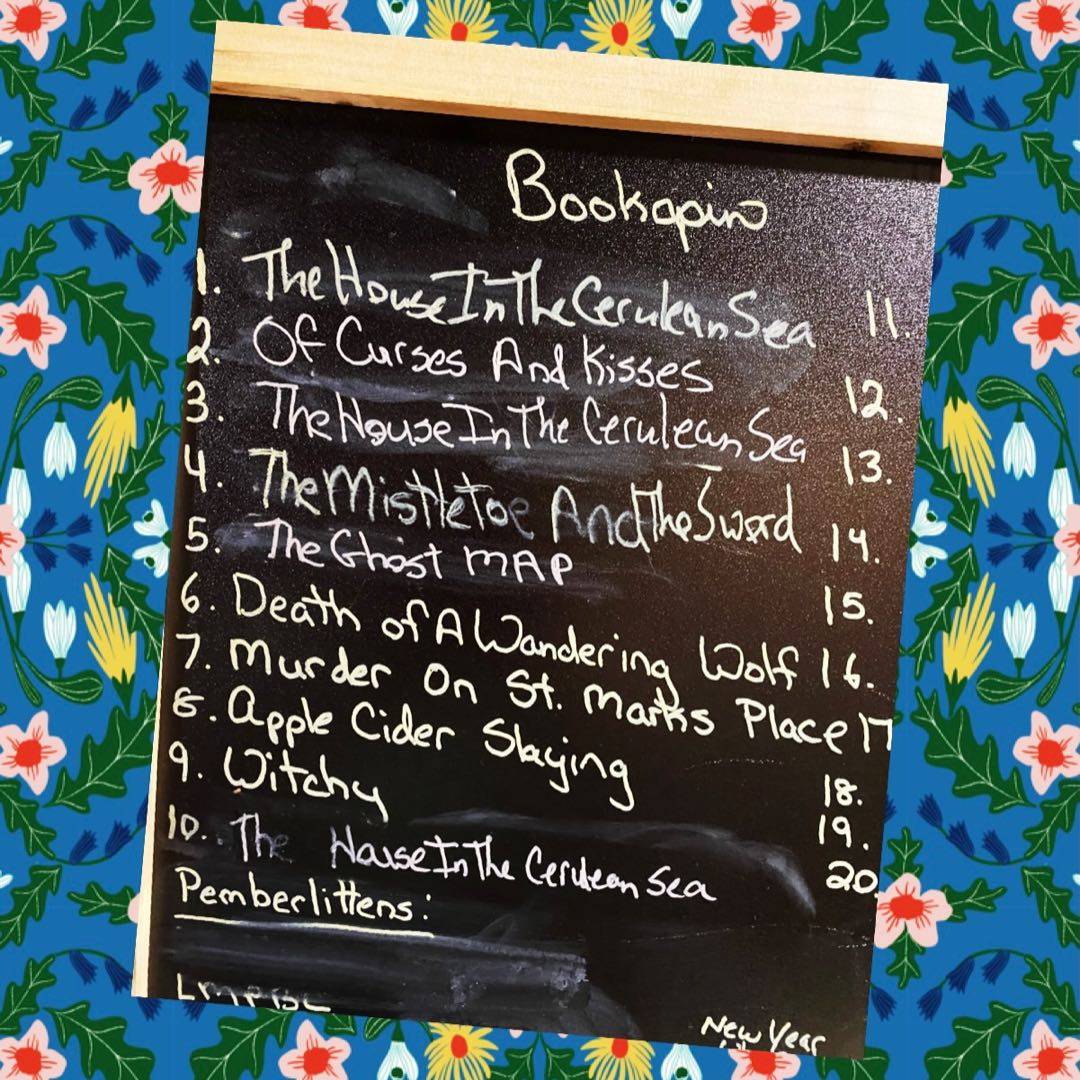 Bookopino
1. The House In The Cerulean Sea 11.
2. Of Curses And Kisses 12.
3. The House In The Cerulean Sea 13.
4. The Mistletoe And The Sword 14.
5. The Ghost MAP 15.
6. Death of A Wandering Wolf 16.
7. Murder On St. Marks Place 17
8. Apple Cider Slaying 18.
9. Witchy 19.
10. The House In The Cerulean Sea 20.
Pemberlittens:
New Year